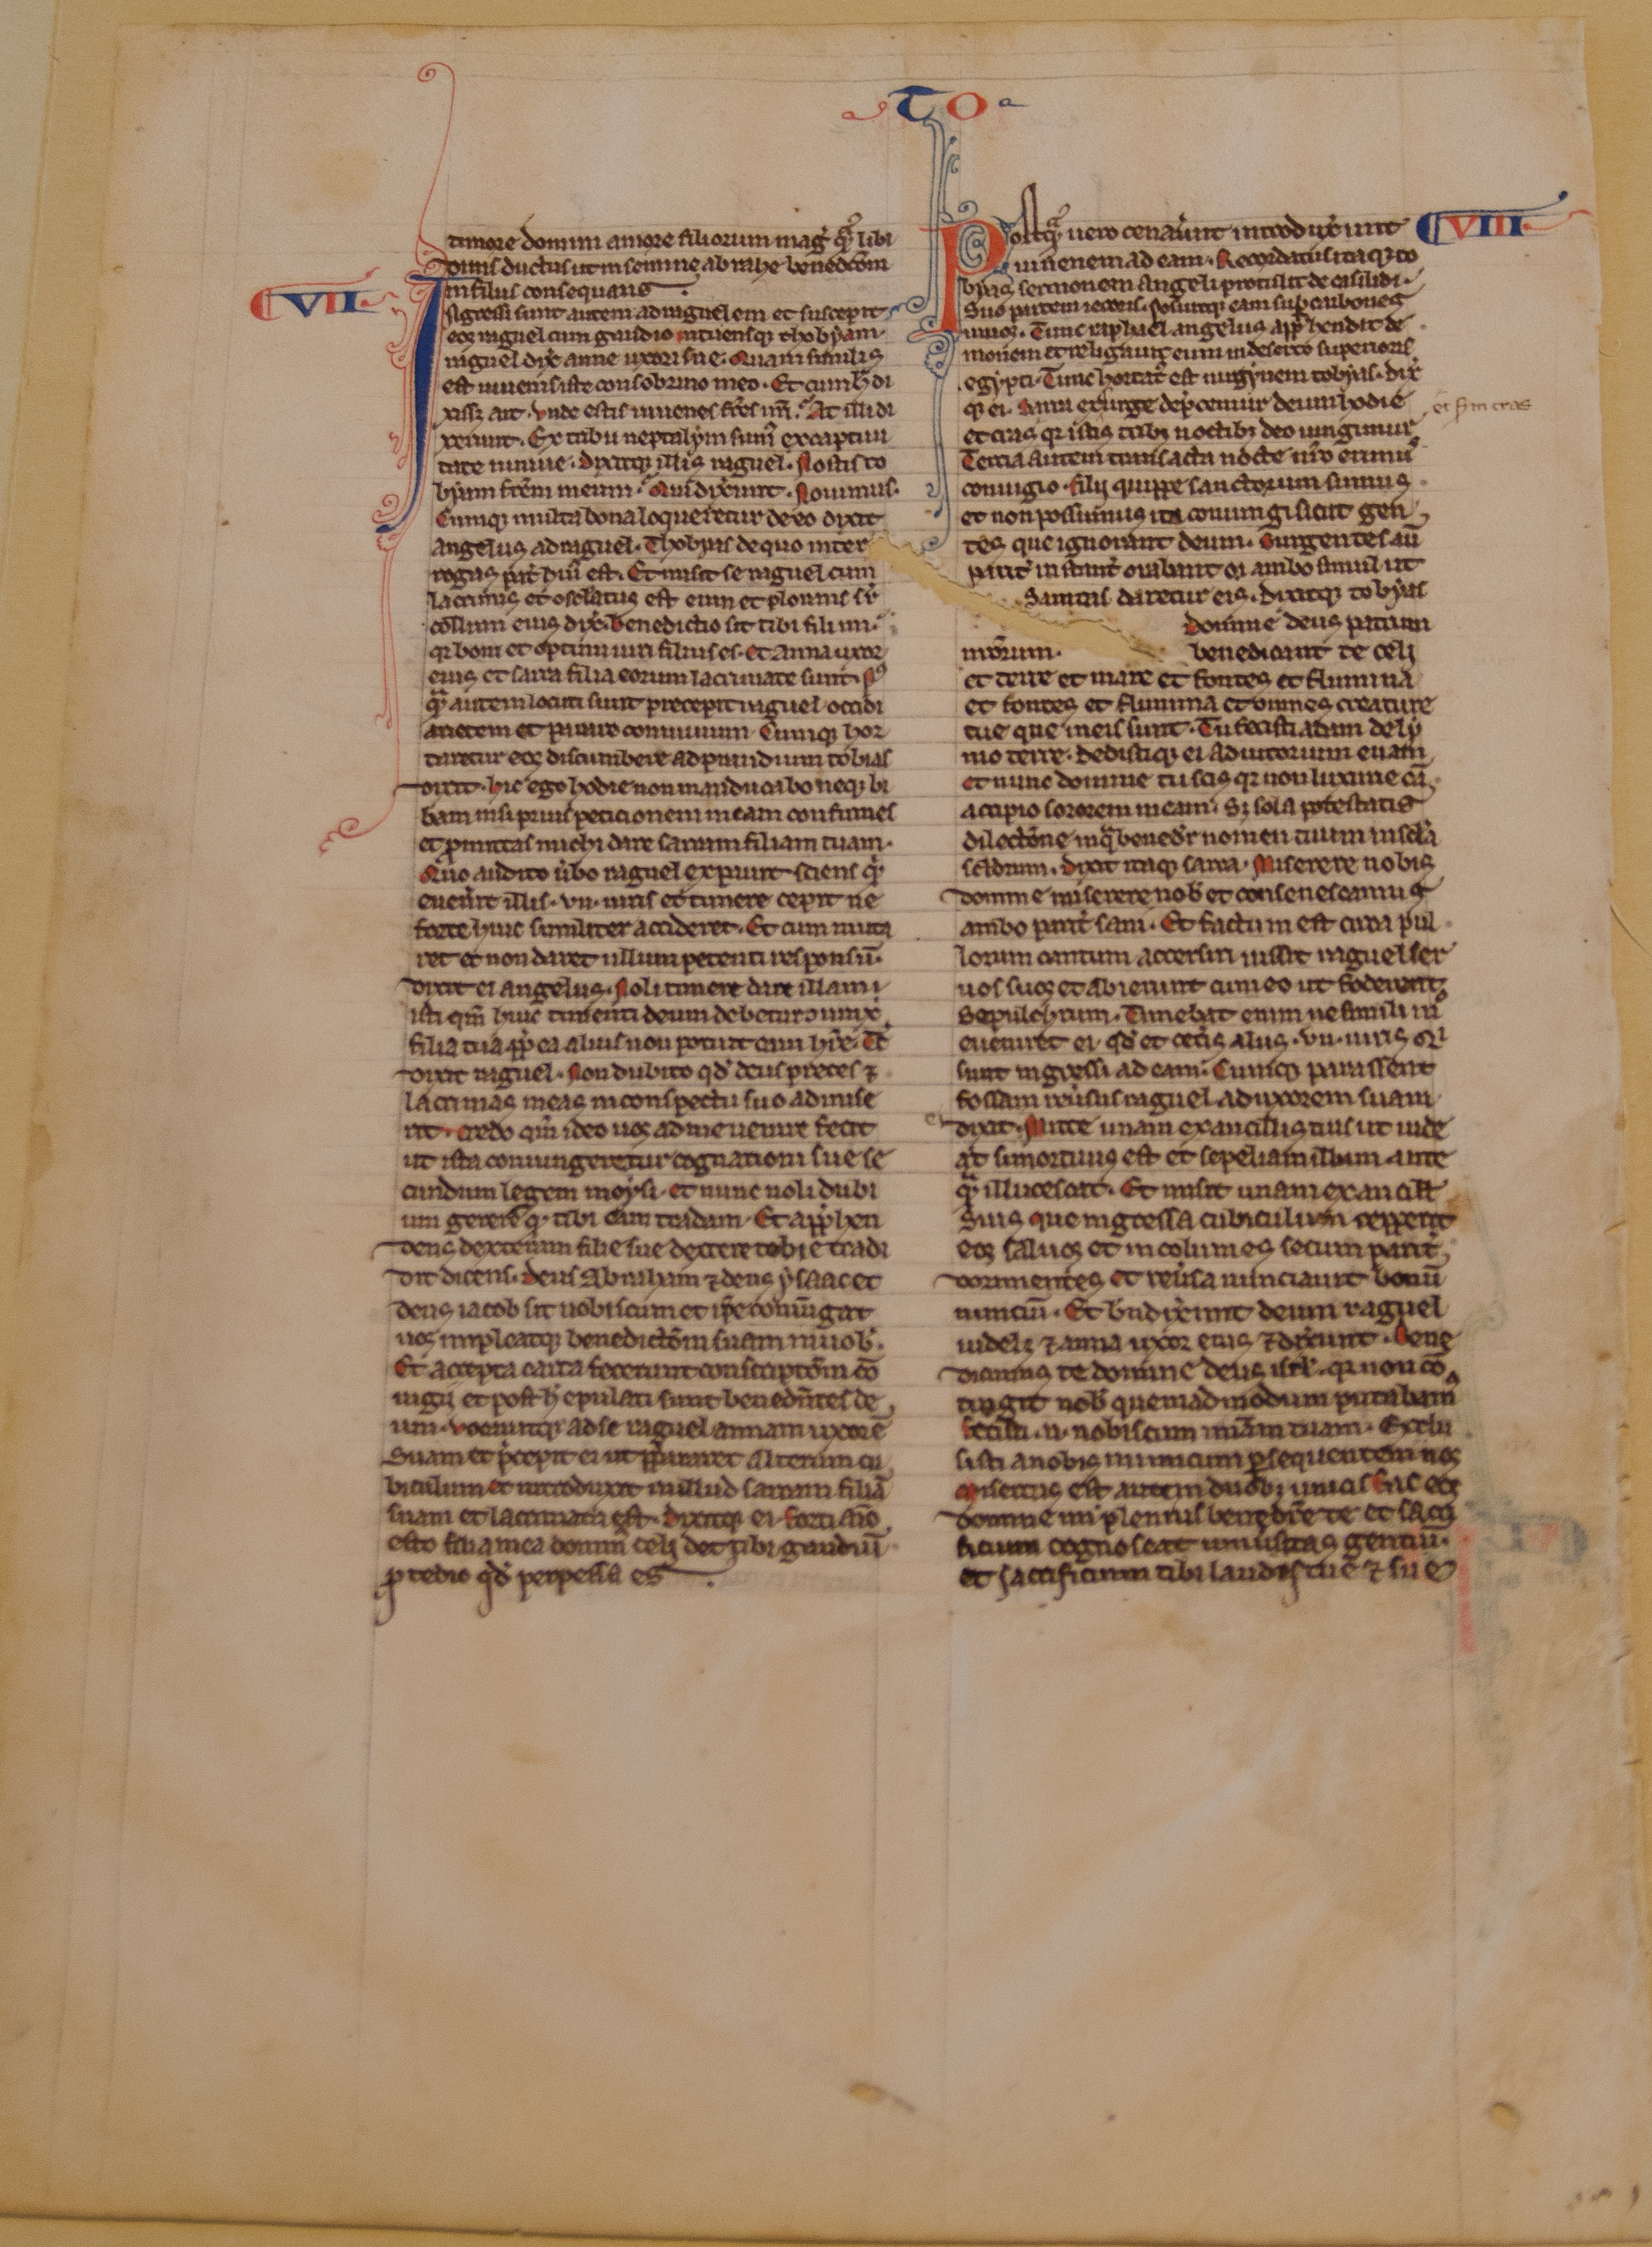 TO
timore domini amore filiorum mag̃ q̃ libi
dinis ductus ut in semine abrahe benedcõm
in filiis consequaris.
VII
Ingressi sunt autem ad raguelem et suscepit
eos raguel cum gaudio intuensq; thobyam
raguel dix̃ anne uxori sue. Quam similis
est iuuenis iste consobrino meo. Et cum h̃ di
xiss; ait. Vnde estis iuuenes fr̃es nr̃i. At illi di
xerunt. Ex tribu neptalym sumꝰ ex captiui
tate niniue. Dixitq; illis raguel. Nostis to
byam fr̃em meum. Qui dixerunt. Nouimus.
Cumq; multa bona loqueretur de eo dixit
angelus ad raguel. Thobyas de quo inter
rogas pat̃ huiꝰ est. Et misit se raguel cum
lacrimis et osculatus est eum et plorans sr̃
collum eius dix̃. benedictio sit tibi fili mi.
qr boni et optimi uiri filius es. et Anna uxor
eius et sarra filia eorum lacrimate sunt. Pꝰ
q̃ autem locuti sunt precepit raguel occidi
arietem et parare conuiuium. Cumq; hor
taretur eos discumbere ad prandium tobias
dixit. hic ego hodie non manducabo neq; bi
bam nisi prius peticionem meam confirmes
et ꝓmittas michi dare sarram filiam tuam.
Quo audito ũbo raguel expauit sciens qď
eueñit illis .vii. uiris et timere cepit ne
forte huic similiter accideret. Et cum nuta
ret et non daret ullum petenti responsũ.
dixit ei angelus. Noli timere dare illam
isti qm̃ huic timenti deum debetur coniunx
filia tua ꝓp̃ ea alius non potuit eam hr̃e. Tc̃
dixit raguel. Non dubito qď deus preces ⁊
lacrimas meas in conspectu suo admise
rit. Credo qm̃ ideo uos ad me uenire fecit
ut ista coniungeretur cognationi sue se
cundum legem moysi. et nunc noli dubi
um gerere q; tibi eam tradam. Et app̃hen
dens dexteram filie sue dextere tobie tradi
dit dicens. Deus Abraham ⁊ deus ysaac et
deus iacob sit uobiscum et ip̃e coniũgat
uos impleatq; benedictõm suam in uob̃.
Et accepta carta fecerunt conscriptõm cõ
iugij et post h̃ epulati sunt benedñtes de
um. Vocauitq; ad se raguel annam uxorẽ
Suam et p̃cepit ei ut p̃pararet alterum cu
biculum et introduxit in illud sarram filiã
suam et lacrimata est. Dixitq; ei. Forti aĩo
esto filia mea dominꝰ celi det tibi gaudiũ
ꝓ tedio qď perpessa es.
VIII
Postq̃ uero cenauerunt introdux̃unt
iuuenem ad eam. Recordatus itaq; to
byas sermonem angeli protulit de cassidi
Suo partem iecoris. posuitq; eam sup̃ carbones
uiuos. Tunc raphael angelus app̃hendit de
monem et religauit eum in deserto superioris
egypti. Tunc hortat̃ est uirginem tobyas. dix̃
q; ei. Sarra exurge dep̃cemur deum hodie
et cras qr istis tribꝰ noctibꝰ deo iungimur
et s̃m cras
Tercia autem transacta nocte nr̃o erimꝰ
coniugio. filij quippe sanctorum sumus
et non possumus ita coniungi sicut gen
tes que ignorant deum. Surgentes aũ
parit̃ instant̃ orabant oĩ ambo simul ut
Sanitas daretur eis. Dixitq; tobyas
domine deus patrum
nr̃orum. benedicant te celi
et terre et mare et fontes et flumina
et fontes et flumina et omnes creature
tue que in eis sunt. Tu fecisti adam de ly
mo terre. dedistiq; ei adiutorium euam
et nunc domine tu scis qr non luxurie cã
accipio sororem meam. S; sola potestatis
dilectõne in q̃ benedr̃ nomen tuum in scl̃a
scl̃orum. Dixit itaq; sarra. Miserere nobis
domine miserere nob̃ et consenescamus
ambo parit̃ sani. Et factum est circa pul
lorum cantum accersiri iussit raguel ser
uos suos et abierunt cum eo ut foderent
Sepulchrum. Timebat enim ne simili mͦ
eueniret ei qď et cet̃is aliis .vii. uiris qi
sunt ingressi ad eam. Cumq; parassent
fossam reũsus raguel ad uxorem suam
dixit. Mitte unam ex ancillis tuis ut uide
at si mortuus est et sepeliam illum ante
q̃ illucescat. Et misit unam ex ancill̃
Suis que ingressa cubiculum repperit
eos saluos et incolumes secum parit̃
dormientes et reũsa nunciauit bonũ
nunciũ. Et bñdixerunt deum raguel
uidel; ⁊ anna uxor eius ⁊ dix̃unt. Bene
dicimus te domine deus isrl̃. qr non cõ
tigit nob̃ quemadmodum putabamꝰ
Fecisti .n. nobiscum mĩam tuam. Exclu
sisti a nobis inimicum ꝑsequentem nos
Misertus est autem duobꝰ unicis. Fac eos
domine mi plenius benedic̃e te et sacri
ficium cognoscat uniũsitas gentiũ
et sacrificium tibi laudis tue ⁊ sue